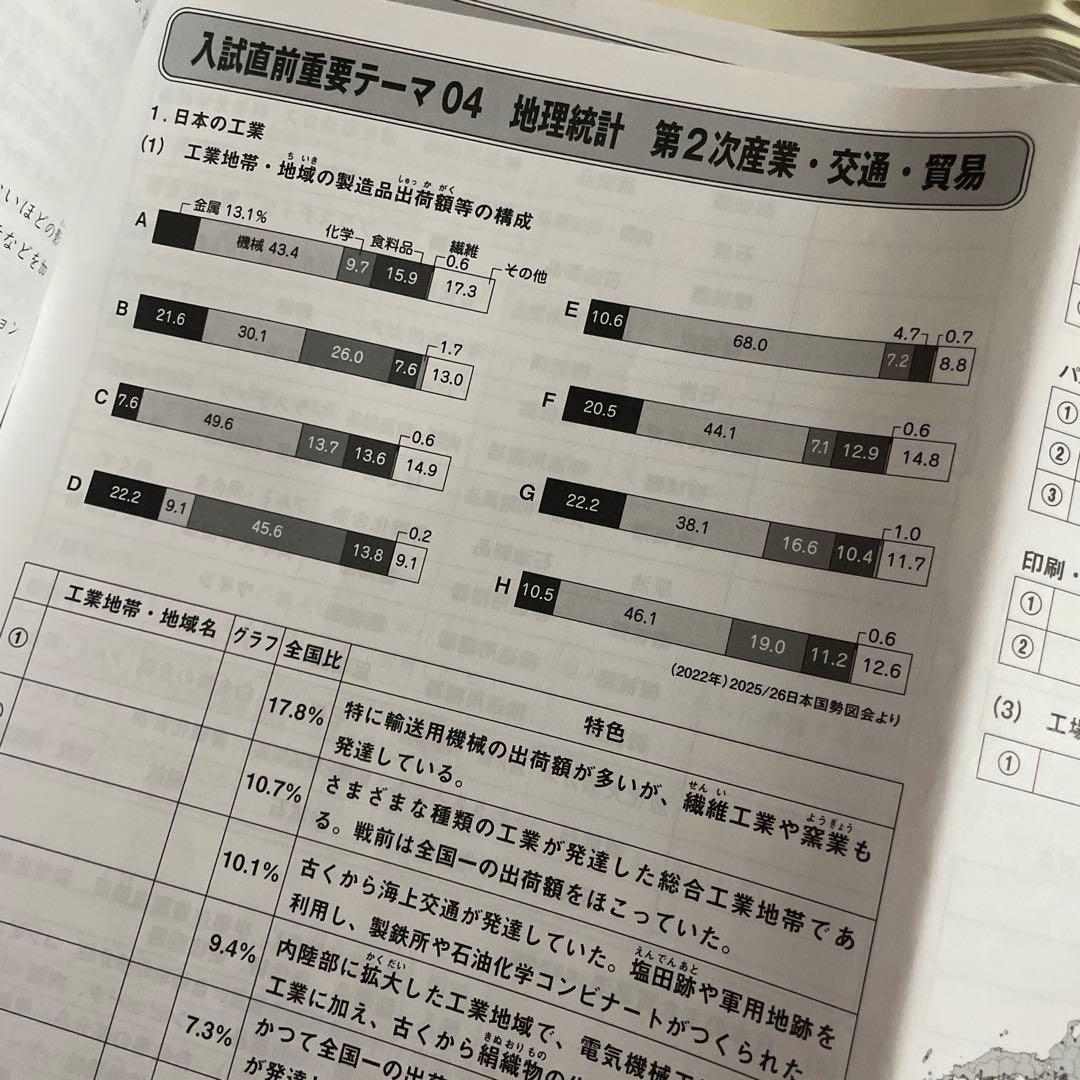 入試直前重要テーマ04 地理統計 第2次産業・交通・貿易
1.日本の工業
(1) 工業地帯・地域の製造品出荷額等の構成
ちいき しゅっかがく
A 金属13.1% 機械43.4 化学9.7 食料品15.9 繊維0.6 その他17.3
B 21.6 30.1 26.0 7.6 1.7 13.0
C 7.6 49.6 13.7 13.6 0.6 14.9
D 22.2 9.1 45.6 13.8 0.2 9.1
E 10.6 68.0 7.2 4.7 0.7 8.8
F 20.5 44.1 7.1 12.9 0.6 14.8
G 22.2 38.1 16.6 10.4 1.0 11.7
H 10.5 46.1 19.0 11.2 0.6 12.6
(2022年)2025/26日本国勢図会より
工業地帯・地域名 グラフ 全国比 特色
① 17.8% 特に輸送用機械の出荷額が多いが、繊維工業や窯業も
せんい ようぎょう
発達している。
10.7% さまざまな種類の工業が発達した総合工業地帯であ
る。戦前は全国一の出荷額をほこっていた。
10.1% 古くから海上交通が発達していた。塩田跡や軍用地跡を
えんでんあと
利用し、製鉄所や石油化学コンビナートがつくられた
9.4% 内陸部に拡大した工業地域で、電気機械
かくだい
工業に加え、古くから絹織物の
きぬおりもの
7.3% かつて全国一の出荷
が発達
いほどの
などを加
ョン
パ
①
②
③
印刷・
①
②
(3) 工場
①